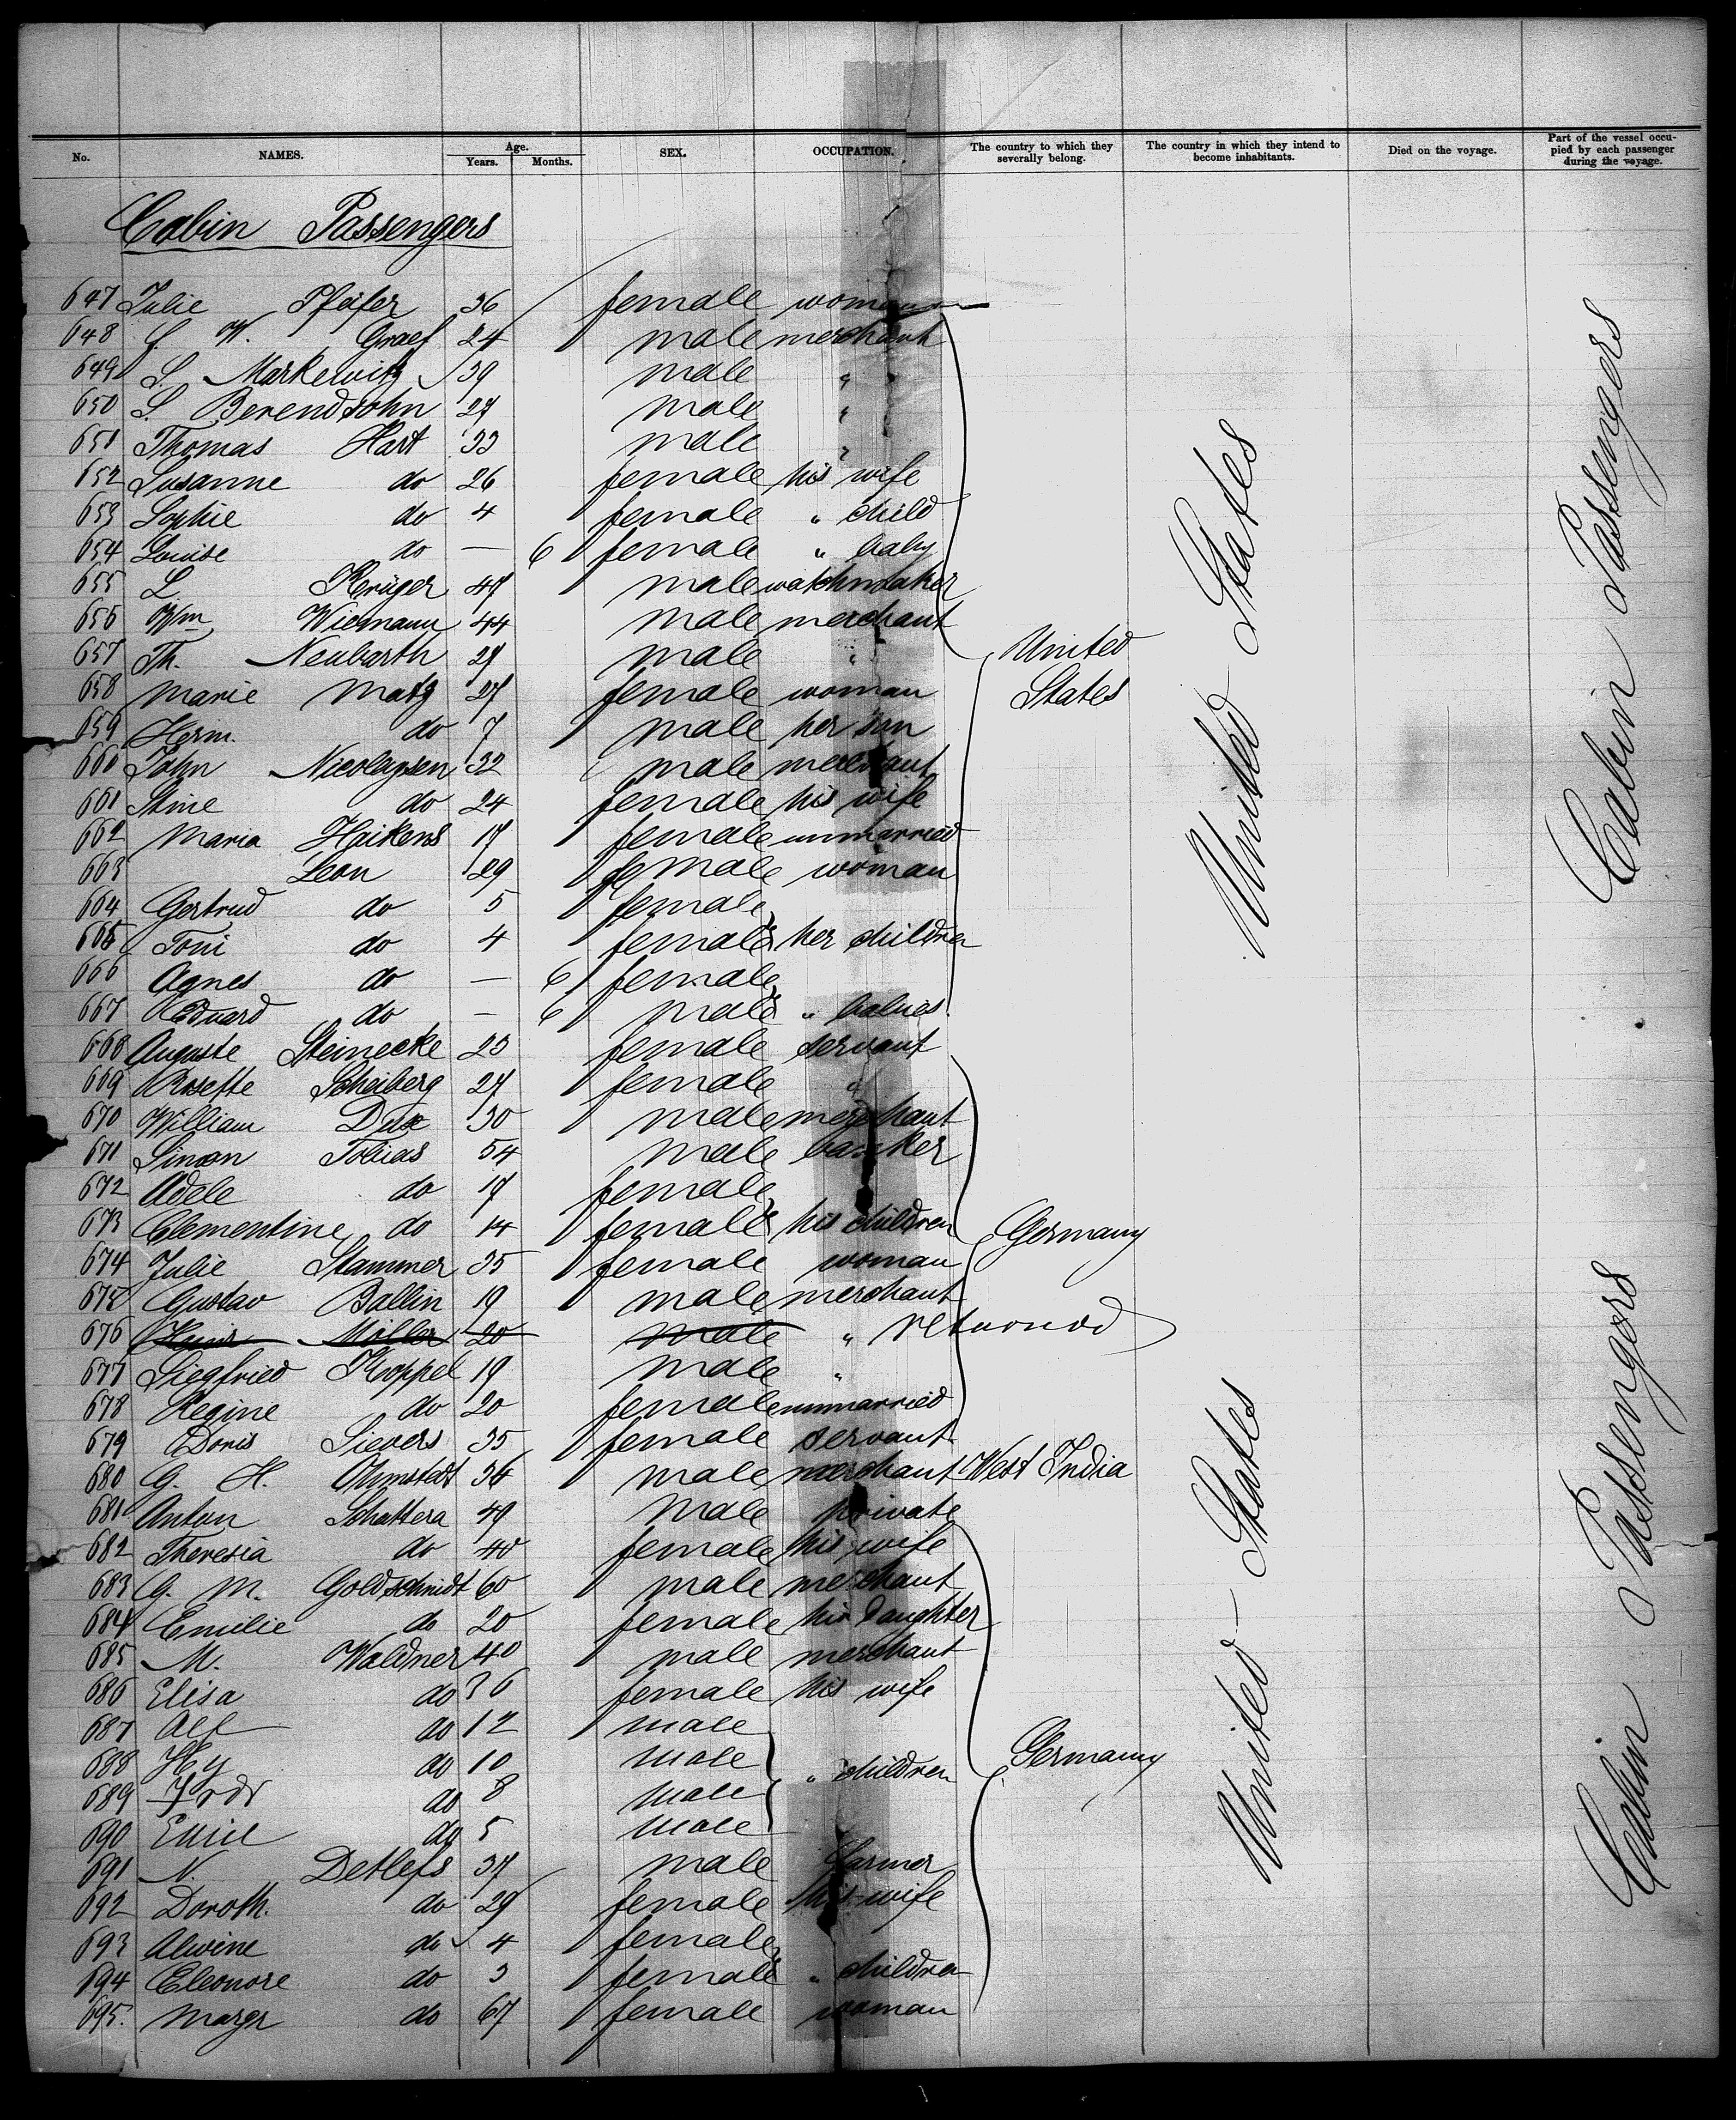 No. NAMES. Age. Years. Months. SEX. OCCUPATION. The country to which they severally belong. The country in which they intend to become inhabitants. Died on the voyage. Part of the vessel occupied by each passenger during the voyage.
Cabin Passengers
647 Julie Pfeifer 36 female woman
648 G. W. Graef 24 male merchant
649 S. Markewitz 39 male "
650 S. Berendsohn 27 male "
651 Thomas Hart 33 male "
652 Susanne do 26 female his wife
653 Sophie do 4 female " child
654 Louise do — 6 female " baby
655 L. Krüger 47 male watchmaker
656 Wm Wiemann 44 male merchant
657 Th. Neubarth 27 male "
658 Marie Matz 27 female woman
659 Herm. do 7 male her son
660 John Nicolaysen 32 male merchant
661 Stine do 24 female his wife
662 Maria Heikens 17 female unmarried
663 Leon 29 female woman
664 Gertrud do 5 female
665 Toni do 4 female her children
666 Agnes do — 6 female
667 Eduard do — 6 male " babies
668 Auguste Steinecke 23 female servant
669 Rosette Scheiberg 27 female "
670 William Dux 30 male merchant
671 Simon Tobias 54 male banker
672 Adele do 17 female
673 Clementine do 14 female his children
674 Julie Stammer 35 female woman
675 Gustav Ballin 19 male merchant
676 Möller 20 male " returned
677 Siegfried Koppel 19 male "
678 Regine do 20 female unmarried
679 Doris Sievers 35 female servant
680 G. H. Ohmstedt 36 male merchant West India
681 Anton Schattera 49 male private
682 Theresia do 40 female his wife
683 G. M. Goldschmidt 60 male merchant
684 Emilie do 20 female his daughter
685 M. Waldner 40 male merchant
686 Elisa do 36 female his wife
687 Alf do 12 male
688 Hy do 10 male " children
689 Frdr do 8 male
690 Emil do 5 male
691 N. Detlefs 37 male farmer
692 Doroth. do 29 female his wife
693 Alwine do 4 female
694 Eleonore do 3 female " children
695. Margr do 67 female woman
United
States
Germany
Germany
United States
United States
Cabin Passengers
Cabin Passengers